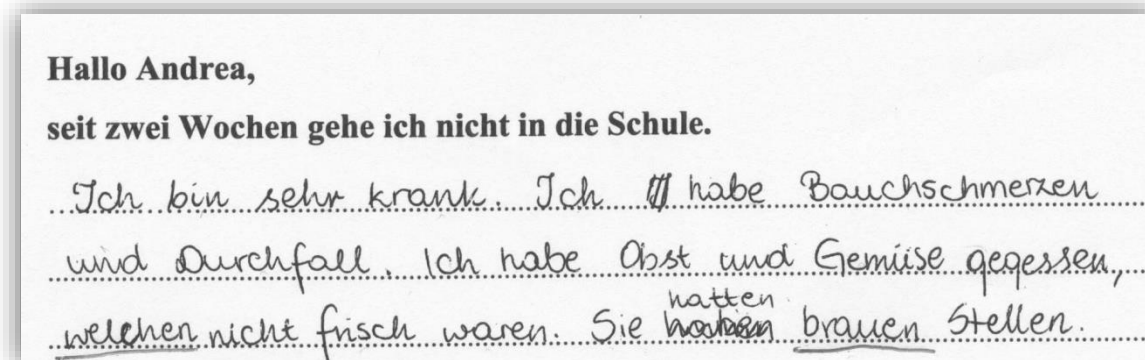 Hallo Andrea,
seit zwei Wochen gehe ich nicht in die Schule.
Ich bin sehr krank. Ich habe Bauchschmerzen
und Durchfall. Ich habe Obst und Gemüse gegessen,
hatten
welchen nicht frisch waren. Sie brauen Stellen.